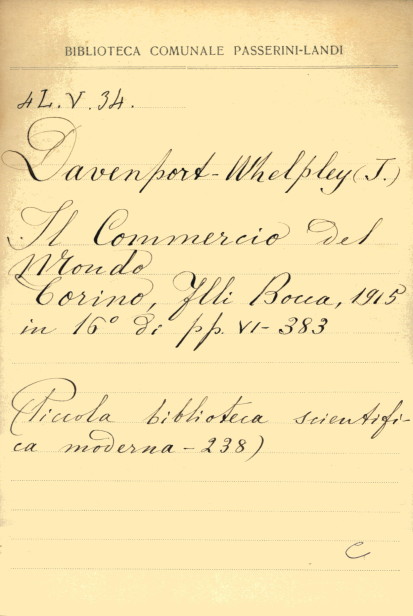 BIBLIOTECA COMUNALE PASSERINI-LANDI
4L.V.34.
Davenport-Whelpley (J.)
Il Commercio del
Mondo
Torino, Flli Bocca, 1915
in 16° di pp. VI-383
(Piccola biblioteca scientifi-
ca moderna - 238)
C